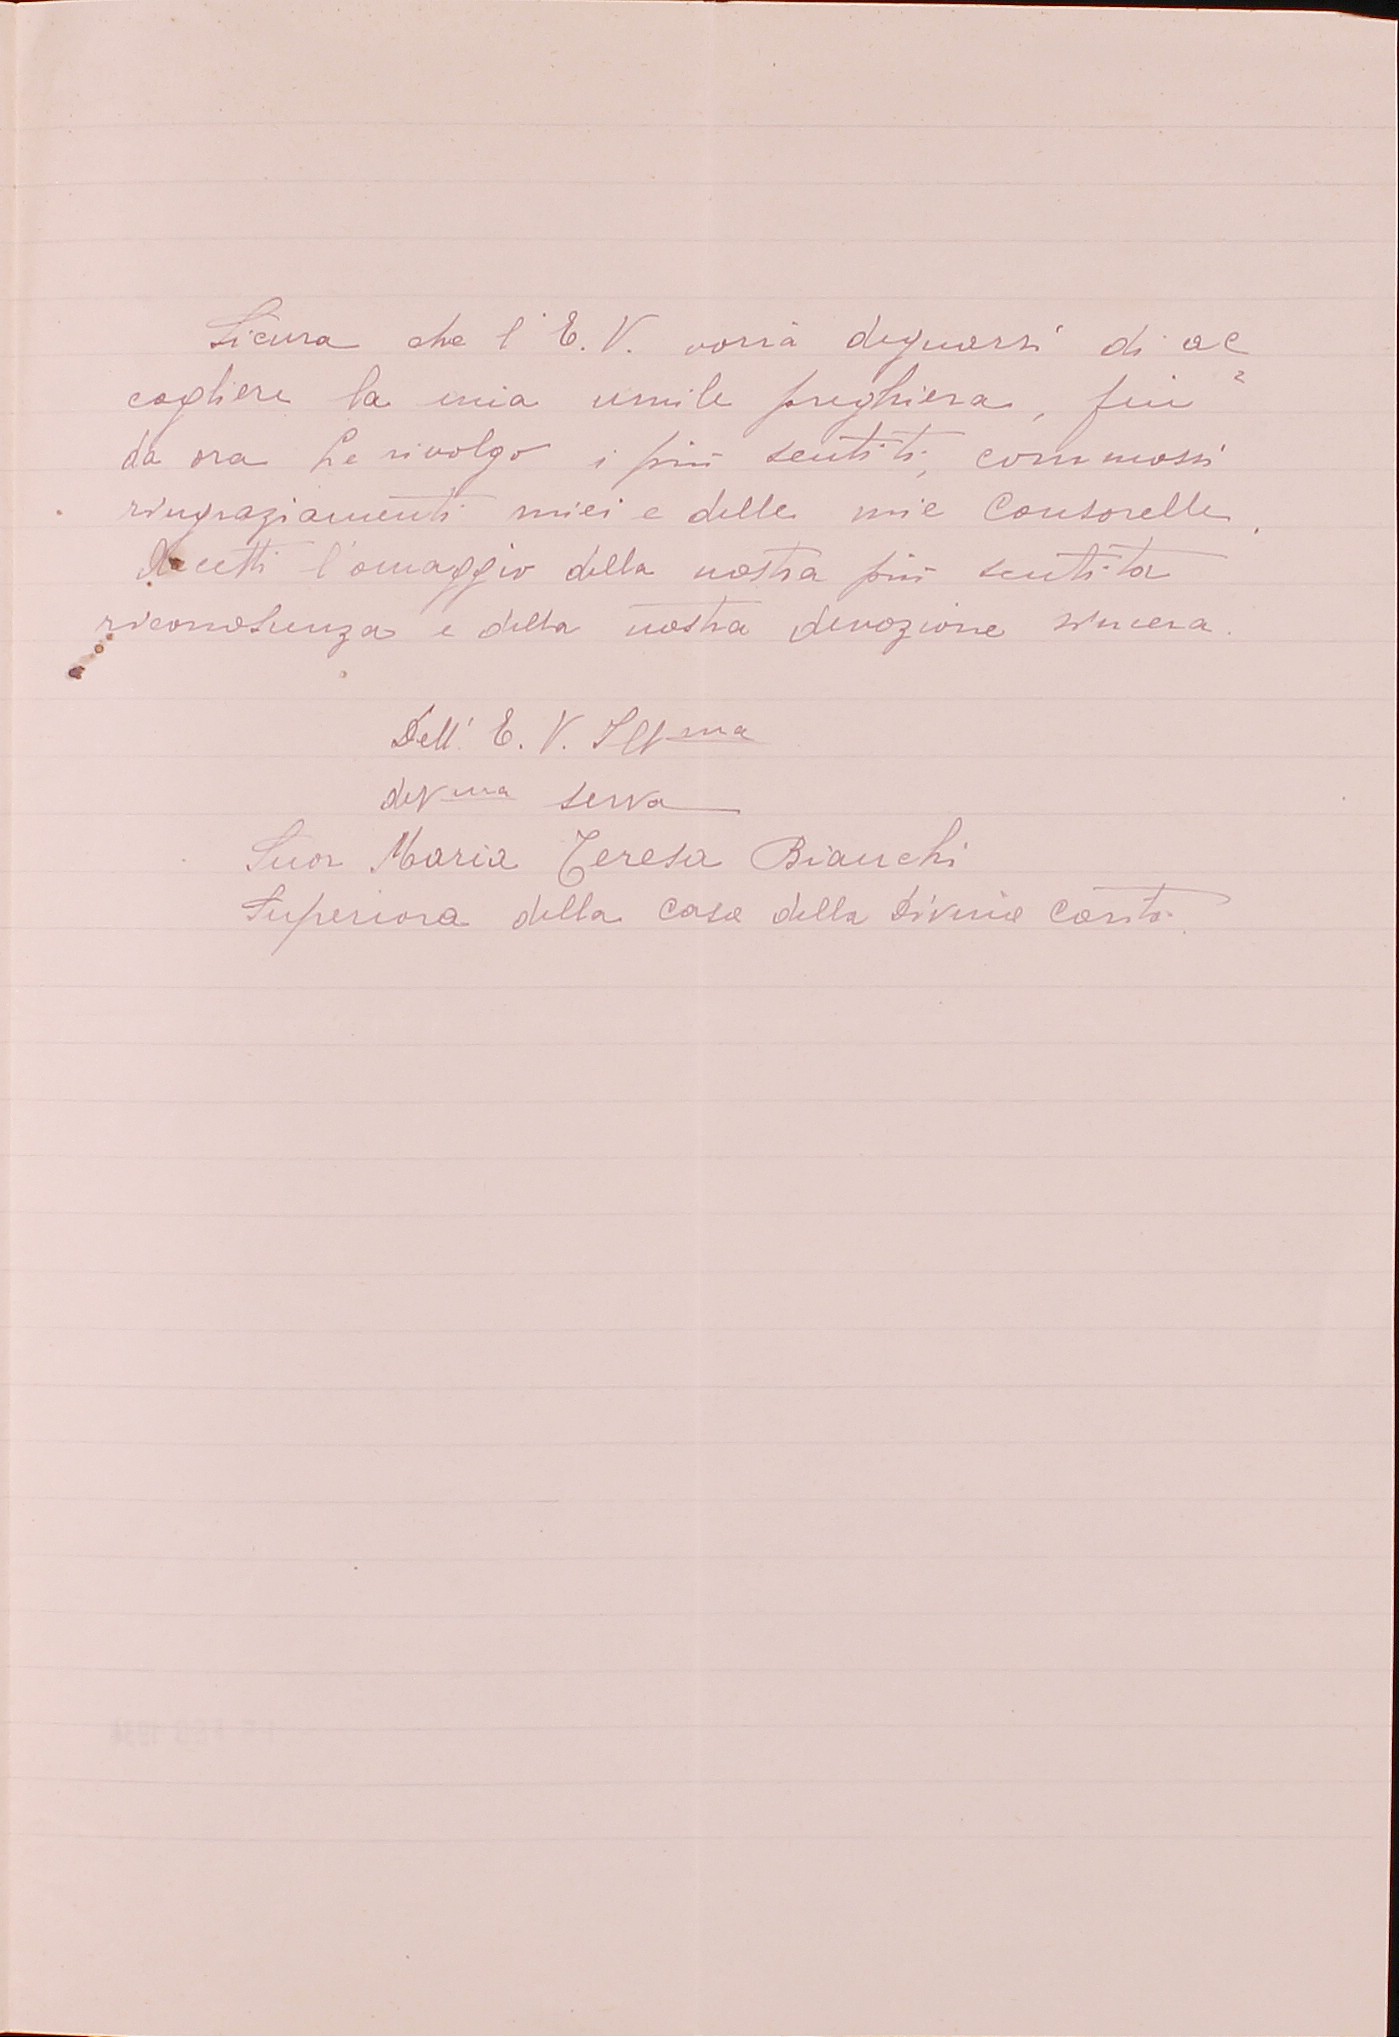 Sicura che l'E. V. vorrà degnarsi di ac
cogliere la mia umile preghiera, fin
da ora Le rivolgo i più sentiti, commossi
ringraziamenti miei e delle mie Consorelle.
Accetti l'omaggio della nostra più sentita
riconoscenza e della nostra devozione sincera.
Dell' E. V. Ill.ma
dev.ma serva
Suor Maria Teresa Bianchi
Superiora della Casa della Divina Carità.